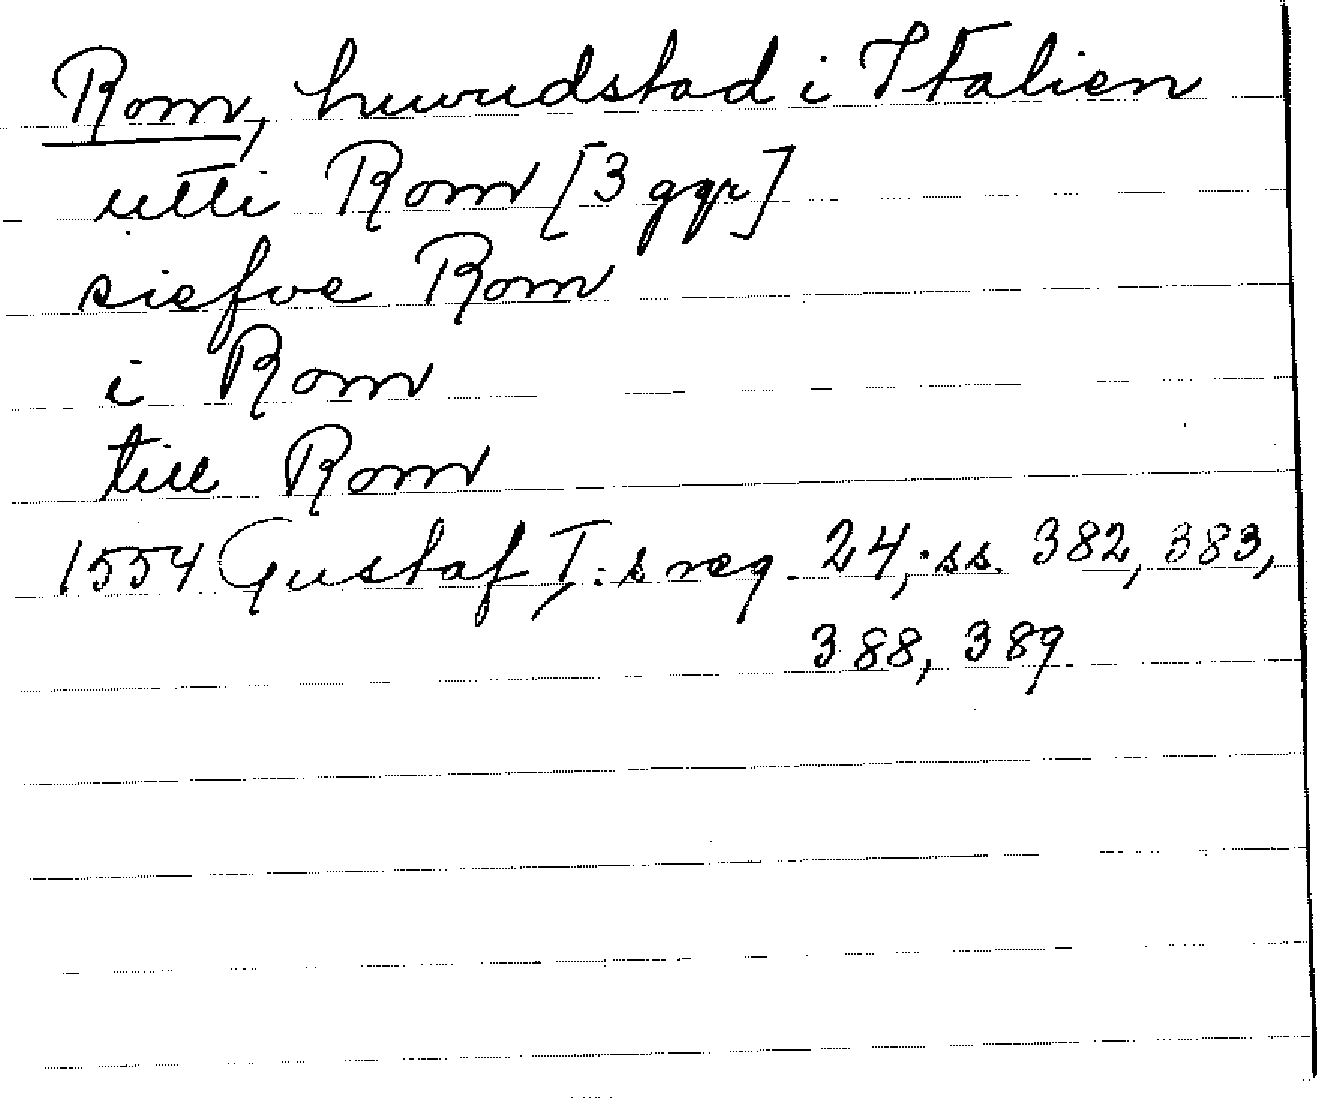 Rom, huvudstad i Italien
utti Rom [3 ggr]
siefve Rom
i Rom
till Rom
1554 Gustaf I:s reg. 24, ss. 382, 383,
388, 389.